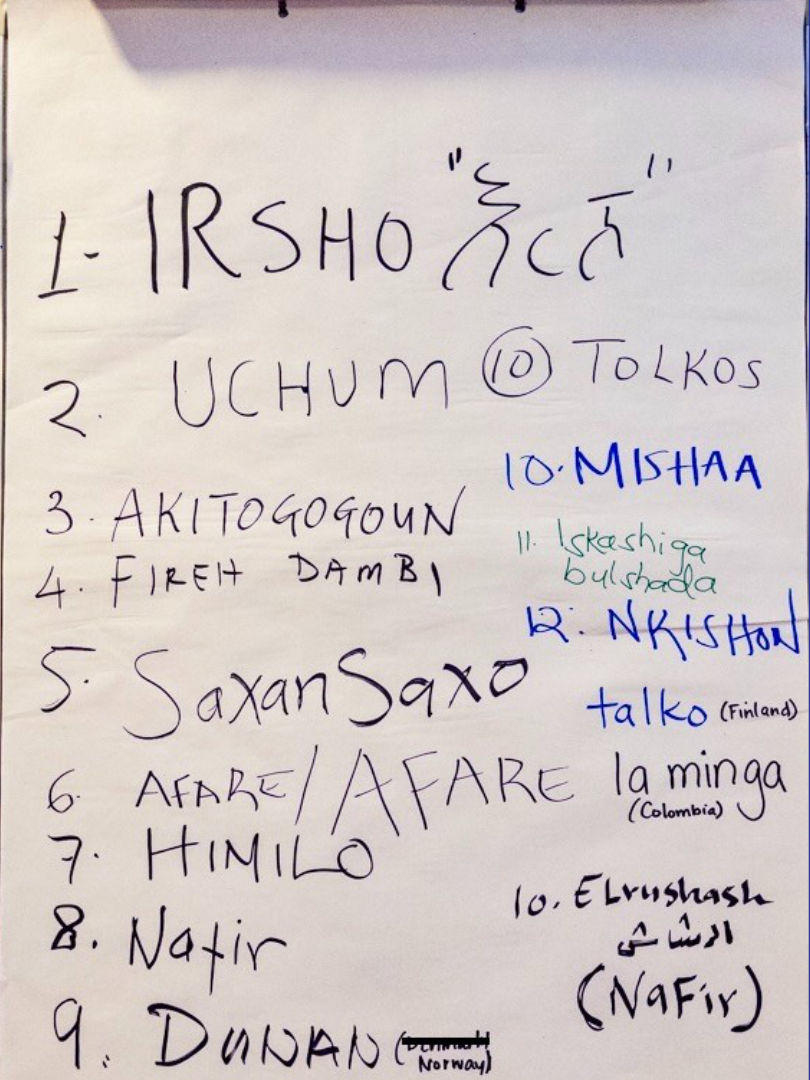 1- IRSHO "እርሾ"
2. UCHUM
⑩ TOLKOS
10. MISHAA
3. AKITOGOGOUN
11. Iskashiga
bulshada
4. FIREH DAMBI
12. NKISHON
5. SaxanSaxo
talko (Finland)
6 AFARE/AFARE
la minga
(Colombia)
7. HIMILO
8. Nafir
10. ELrushash
الرشاش
(NaFir)
9. DUNAN (
Norway)